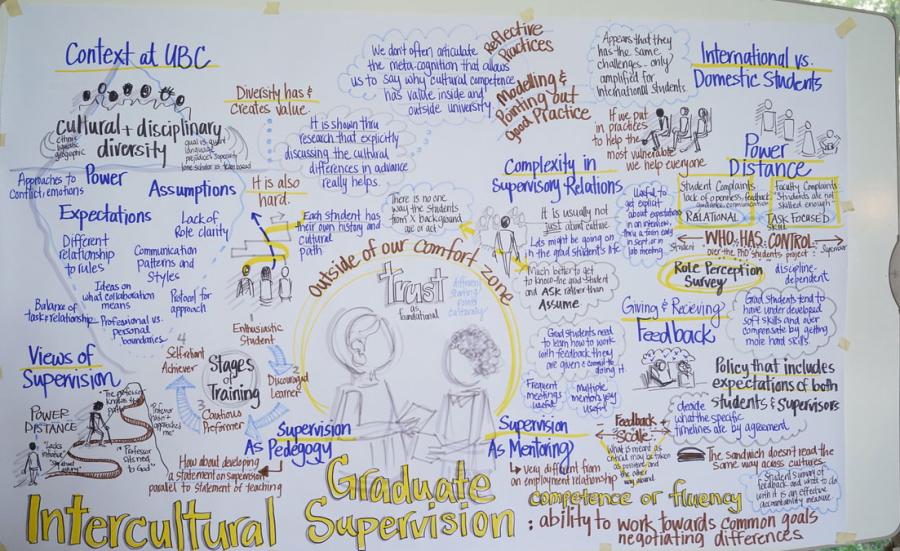 Context at UBC
cultural + disciplinary
diversity
ethnic
linguistic
geographic
qual vs. quant
language
Approaches to
Conflict, emotions
Power
Assumptions
Expectations
Lack of
Role clarity
Different
relationship
to rules
Communication
patterns and
styles
Ideas on
what collaboration
means
Protocol for
approach
Balance of
task + relationship
Professional vs.
personal
boundaries
Diversity has &
creates value
It is shown thru
research that explicitly
discussing the cultural
differences in advance
really helps.
It is also
hard.
Each student has
their own history and
cultural
path
We don't often articulate
the meta-cognition that allows
us to say why cultural competence
has value inside and
outside university
Reflective
Practices
Modelling &
Pointing out
Good Practice
There is no
one way the students
from X background
are or act
Outside of our comfort zone
Trust
as
foundational
Appears that they
has the same
challenges - only
amplified for
International students
International vs.
Domestic Students
If we put
in practices
to help the
most vulnerable
we help everyone
Power
Distance
Student Complaints
lack of openness, feedback
RELATIONAL
Faculty Complaints
Students are not
skilled enough
TASK FOCUSED
Student
WHO HAS CONTROL
Supervisor
over the PhD student's project
Role Perception
Survey
discipline-
dependent
Complexity in
Supervisory Relations
It is usually not
just about culture
Lots might be going on
in the grad student's life
Much better to get
to know the grad student
and ASK rather than
Assume
Useful to
get explicit
about expectations
Giving & Recieving
Feedback
Grad students tend to
have under developed
soft skills and over
compensate by getting
more hard skills.
Grad students need
to learn how to work
with feedback they
are given & commit to
doing it.
Frequent
meetings
useful
Multiple
mentors very
useful
Policy that includes
expectations of both
students & Supervisors
decide
what the specific
timelines are by agreement.
Feedback
Scale
The Sandwich doesn't read the
same way across cultures.
Views of
Supervision
POWER
DISTANCE
Self-reliant
Achiever
4
Enthusiastic
Student
1
Stages
of
Training
Discouraged
Learner
2
Cautious
Performer
3
Supervision
As Pedegogy
How about developing
a statement on supervision
parallel to statement of teaching
Supervision
As Mentoring
very different from
an employment relationship
Intercultural
Graduate
Supervision
competence or fluency
: ability to work towards common goals
negotiating differences.